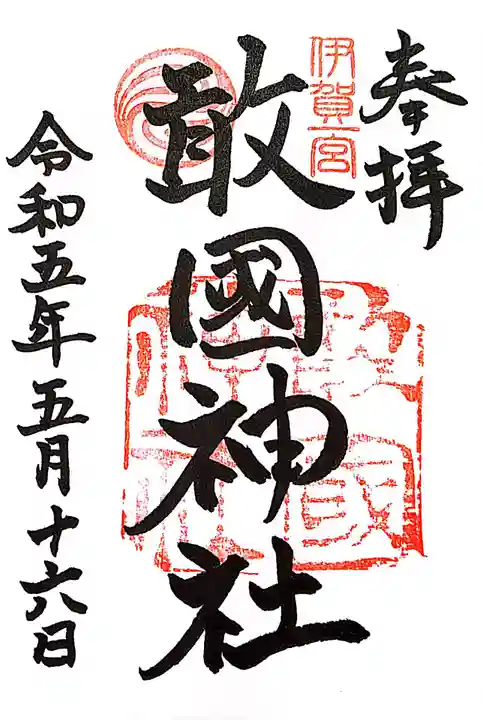 奉拝
伊賀一宮
敢國神社
敢國
神社
令和五年五月十六日